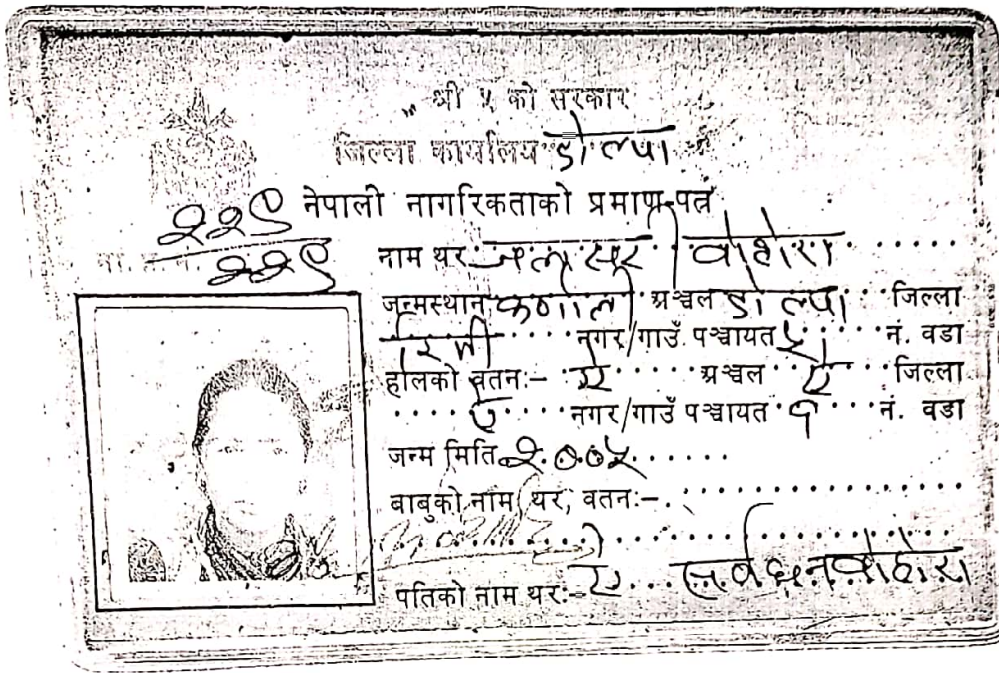 श्री ५ को सरकार
जिल्ला कार्यालय डोल्पा
नेपाली नागरिकताको प्रमाण-पत्र
२२९
२२९
नाम थर जलासरी वोहोरा
जन्मस्थान कर्णाली अञ्चल डोल्पा जिल्ला
रिमी नगर/गाउँ पञ्चायत नं. वडा
हालको वतन:- ऐ अञ्चल ऐ जिल्ला
ऐ नगर/गाउँ पञ्चायत १ नं. वडा
जन्म मिति २००५
बाबुको नाम थर, वतन:-
पतिको नाम थर:- ऐ सर्वधन वोहोरा